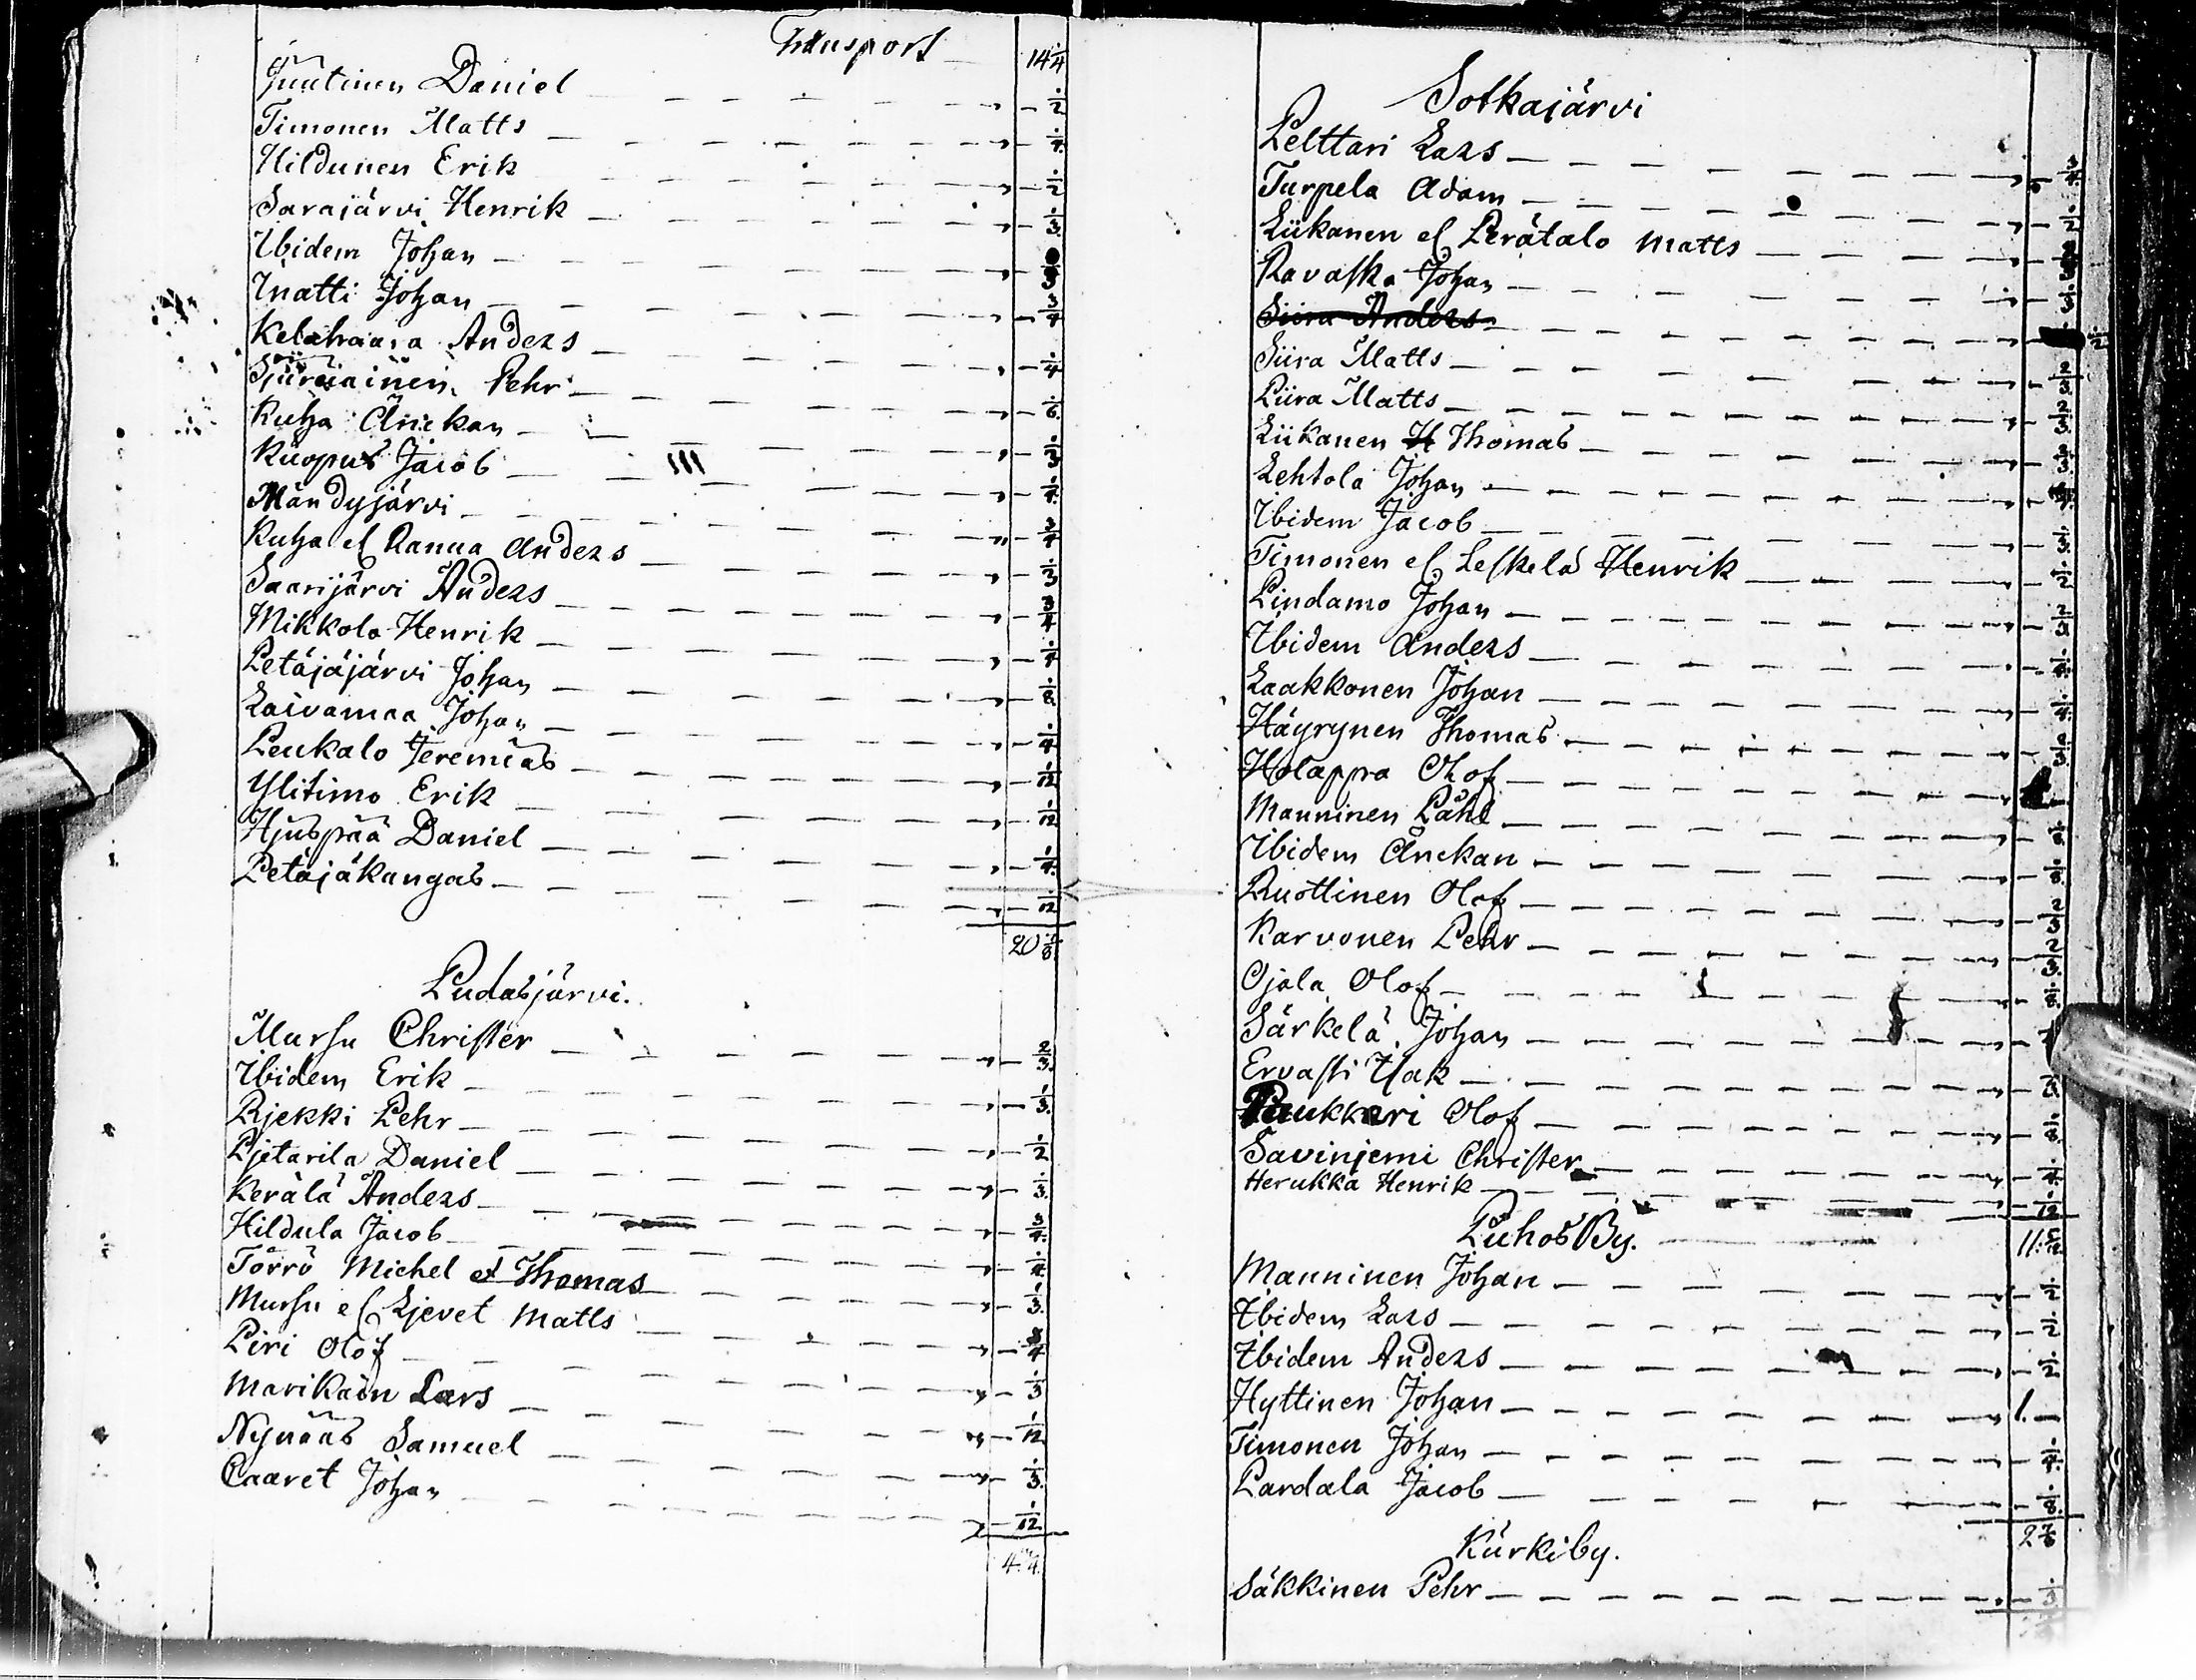 Transport 14 1/4
Juutinen Daniel - 1/2
Timonen Matts - 1/4
Hildunen Erik - 1/2
Sarajärvi Henrik - 1/3
Ibidem Johan
Inatti Johan - 3/4
Kelahaara Anders - 1/4
Pehr - 1/6
Kuha Änckan - 1/3
Kuopus Jacob - 1/4
Mändyjärvi - 3/4
Kuha el Ranua Anders - 1/3
Saarijärvi Anders - 3/4
Mikkola Henrik - 1/4
Petäjäjärvi Johan - 1/8
Laivamaa Johan - 1/4
Leukalo Jeremias - 1/12
Ylitimo Erik - 1/12
Hjuspää Daniel - 1/4
Petäjäkangas - 1/12
20 1/8
Pudasjärvi.
Mursu Christer - 2/3
Ibidem Erik - 1/3
Rjekki Pehr - 1/2
Pjetarila Daniel - 1/3
Kerälä Anders - 3/4
Hildula Jacob - 1/4
Törrö Michel et Thomas - 1/3
Mursu el Ljevet Matts - 3/4
Piri Olof - 1/3
Marikain Lars - 1/12
Nynääs Samuel - 1/3
Caaret Johan - 1/12
Sotkajärvi
Pelttari Lars - 3/4
Turpela Adam - 1/2
Liikanen el Perätalo Matts
Ravaska Johan - 1/3
Siira Anders 1/2
Siira Matts - 2/3
Piira Matts - 2/3
Liikanen Thomas - 2/3
Lehtola Johan
Ibidem Jacob - 1/3
Timonen el Leskelä Henrik - 1/2
Lindamo Johan - 2/3
Ibidem Anders
Laakkonen Johan - 1/4
Häyrynen Thomas - 2/3
Holappa Olof
Manninen Påhl
Ibidem Änckan - 1/8
Ruottinen Olof - 2/3
Karvonen Pehr - 2/3
Ojala Olof - 1/8
Särkelä Johan
Ervasti Isak - 1/3
Paukkeri Olof - 1/8
Savinjemi Christer - 1/4
Herukka Henrik - 1/12
Puhos By. 11
Manninen Johan - 1/2
Ibidem Lars - 1/2
Ibidem Anders - 1/2
Hyttinen Johan 1. -
Timonen Johan - 1/4
Pardala Jacob - 1/8
2 7/8
Kurki by.
Säkkinen Pehr - 1/3